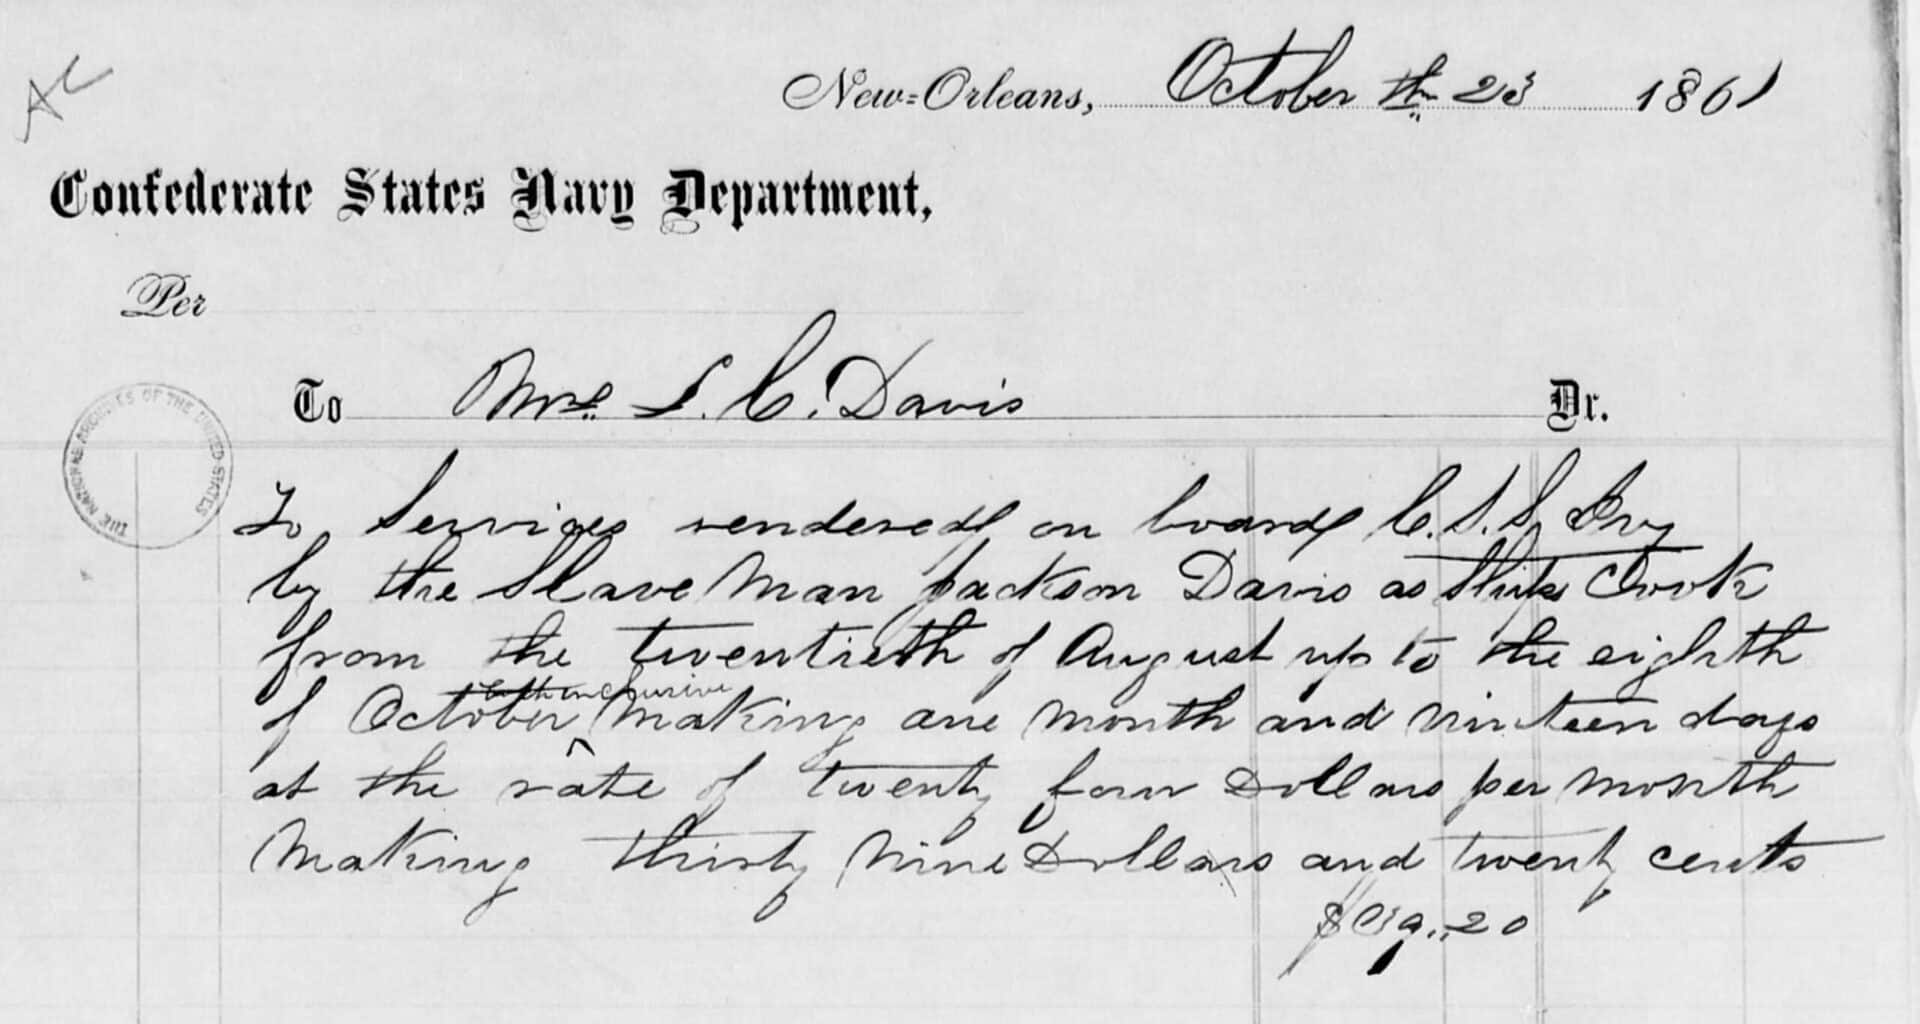 AC
New=Orleans, October th 23 1861
Confederate States Navy Department,
Per
To Mrs S. C. Davis Dr.
THE NATIONAL ARCHIVES OF THE UNITED STATES
To Services rendered on board C.S.S. Ivy
by the Slave Man Jackson Davis as Ships Cook
from the twentieth of August up to the eighth
both inclusive
of October making one month and nineteen days
at the rate of twenty four Dollars per month
Making thirty Nine Dollars and twenty cents
$39.20